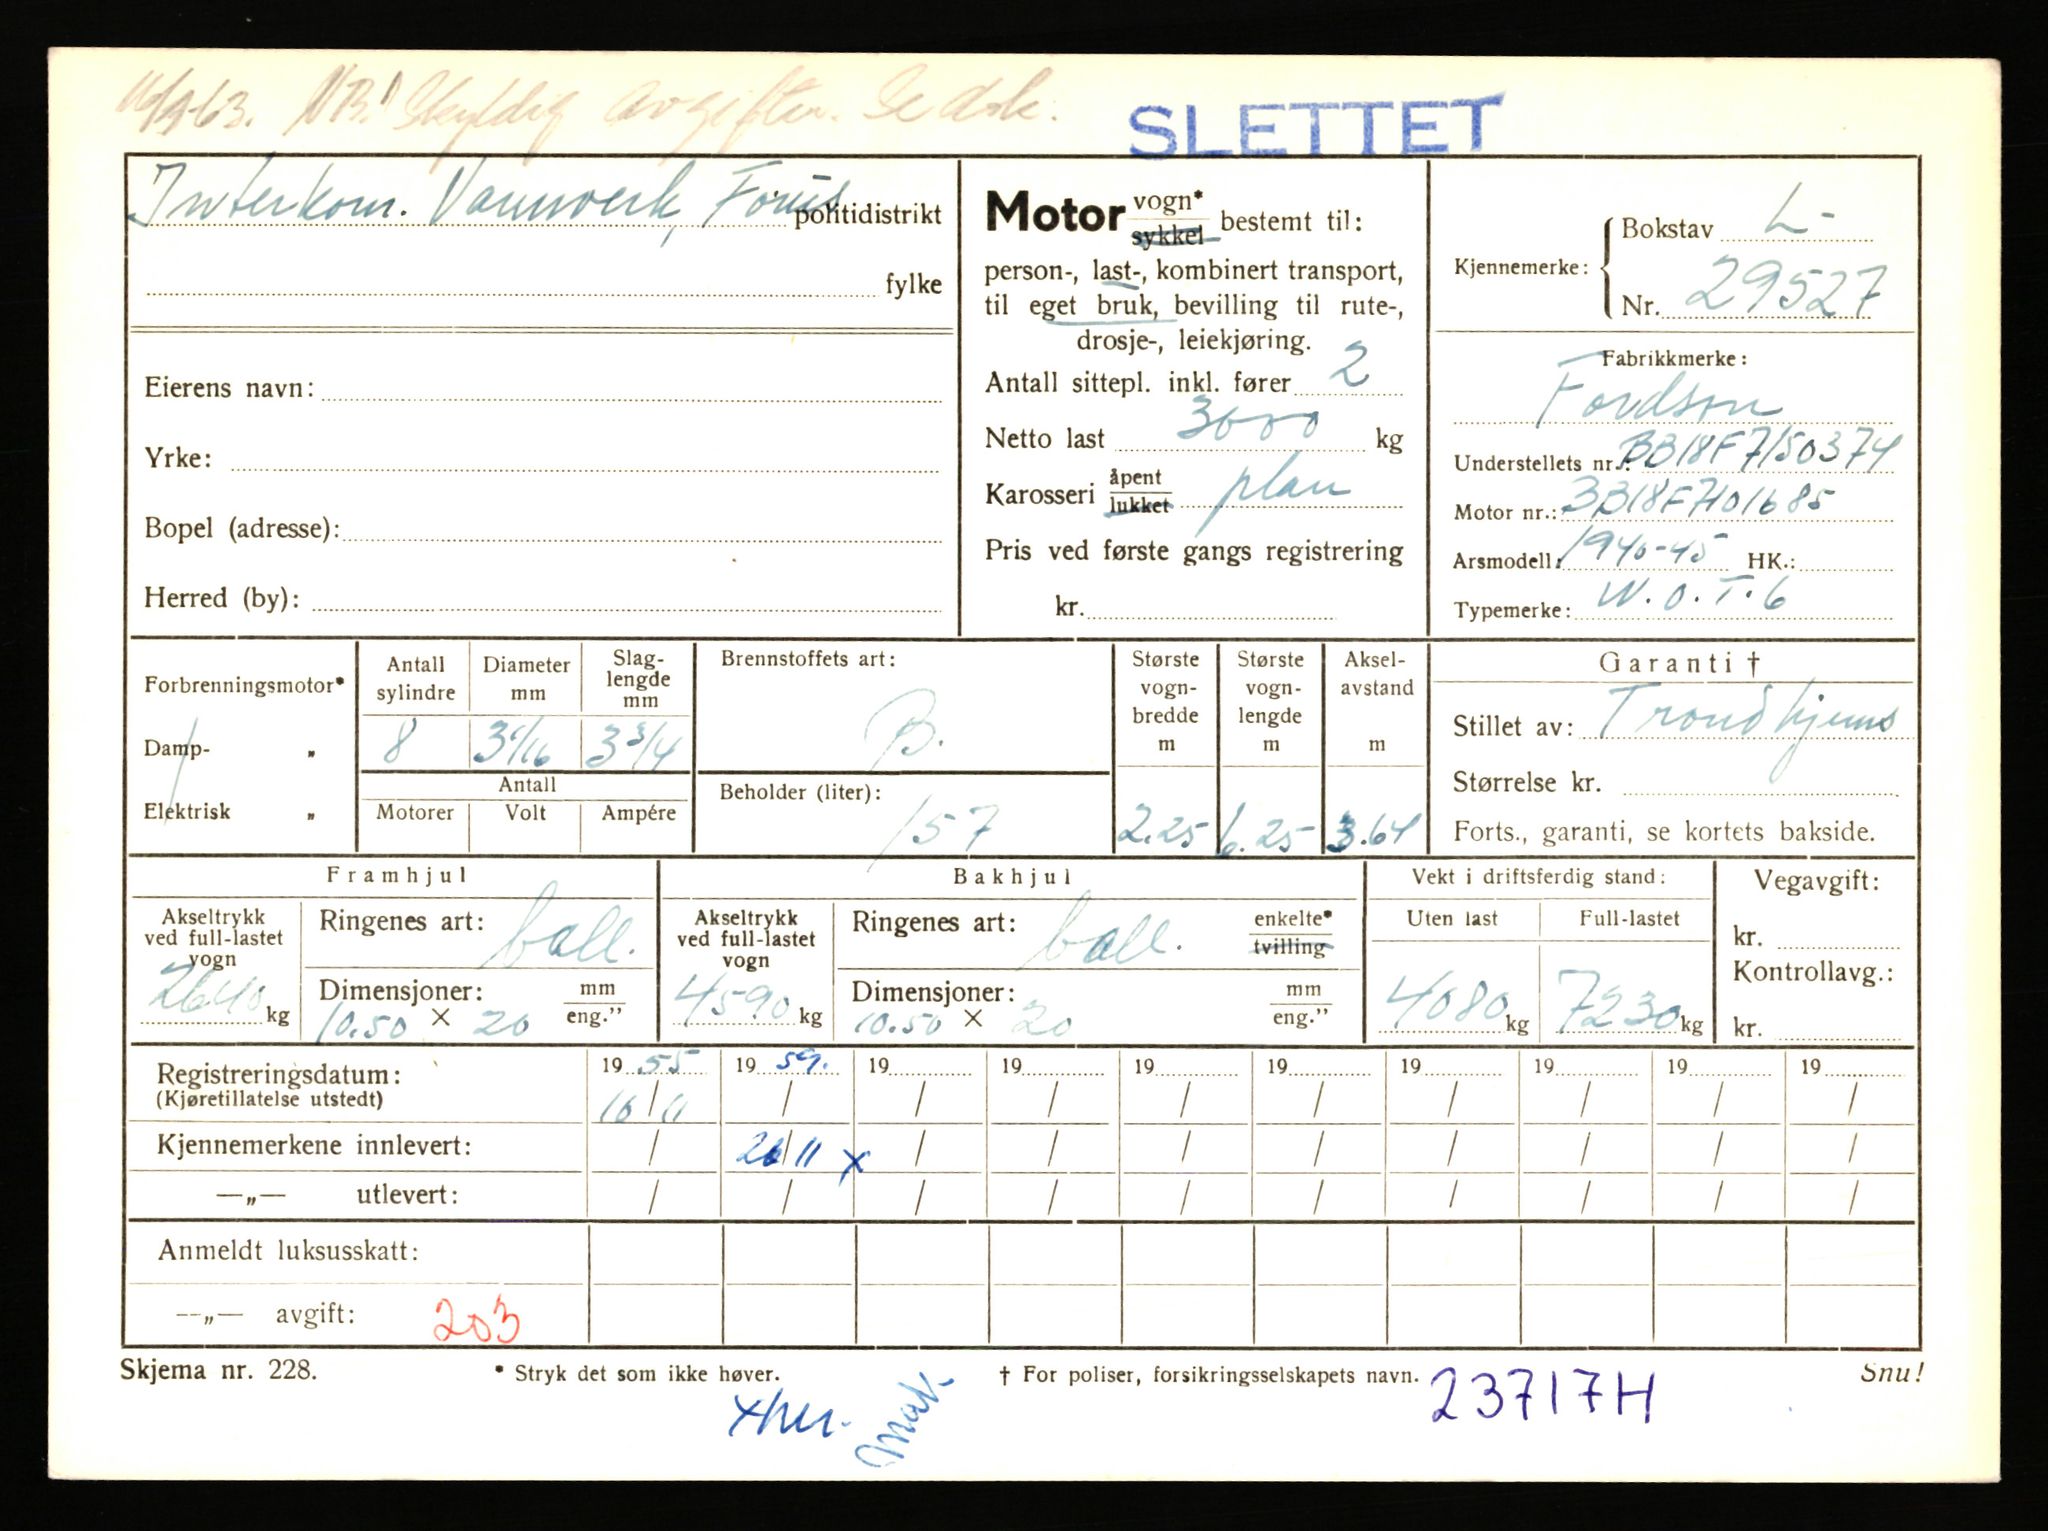 16/9-63. NB! Skyldig avgifter. Se dok.
SLETTET
Interkom. Vannverk, Foús politidistrikt
fylke
Eierens navn:
Yrke:
Bopel (adresse):
Herred (by):
Motor vogn* sykkel bestemt til:
person-, last-, kombinert transport,
til eget bruk, bevilling til rute-,
drosje-, leiekjøring.
Antall sittepl. inkl. fører 2
Netto last 3000 kg
Karosseri åpent lukket plan
Pris ved første gangs registrering
kr.
Kjennemerke: Bokstav L-
Nr. 29527
Fabrikkmerke:
Fordson
Understellets nr.: BB18F7150374
Motor nr.: BB18F7101685
Arsmodell: 1940-45 HK.:
Typemerke: W.O.T.6
Forbrenningsmotor*
Damp- „
Elektrisk „
Antall sylindre
Diameter mm
Slag-lengde mm
8 3 1/16 3 3/4
Antall
Motorer Volt Ampére
Brennstoffets art:
B.
Beholder (liter):
157
Største vogn-bredde m
2.25
Største vogn-lengde m
6.25
Aksel-avstand m
3.64
Garanti †
Stillet av: Trondhjems
Størrelse kr.
Forts., garanti, se kortets bakside.
Framhjul
Akseltrykk ved full-lastet vogn
2640 kg
Ringenes art: ball.
Dimensjoner: mm eng.”
10.50 × 20
Bakhjul
Akseltrykk ved full-lastet vogn
4590 kg
Ringenes art: ball. enkelte* tvilling
Dimensjoner: mm eng.”
10.50 × 20
Vekt i driftsferdig stand:
Uten last Full-lastet
4080 kg 7230 kg
Vegavgift:
kr.
Kontrollavg.:
kr.
Registreringsdatum: 19 55 19 59. 19 19 19 19 19 19 19 19
(Kjøretillatelse utstedt) 16/11 / / / / / / / / /
Kjennemerkene innlevert: / 26/11 x / / / / / / / /
—„— utlevert: / / / / / / / / / /
Anmeldt luksusskatt:
—„— avgift: 203
Skjema nr. 228. * Stryk det som ikke høver. † For poliser, forsikringsselskapets navn. 23717H Snu!